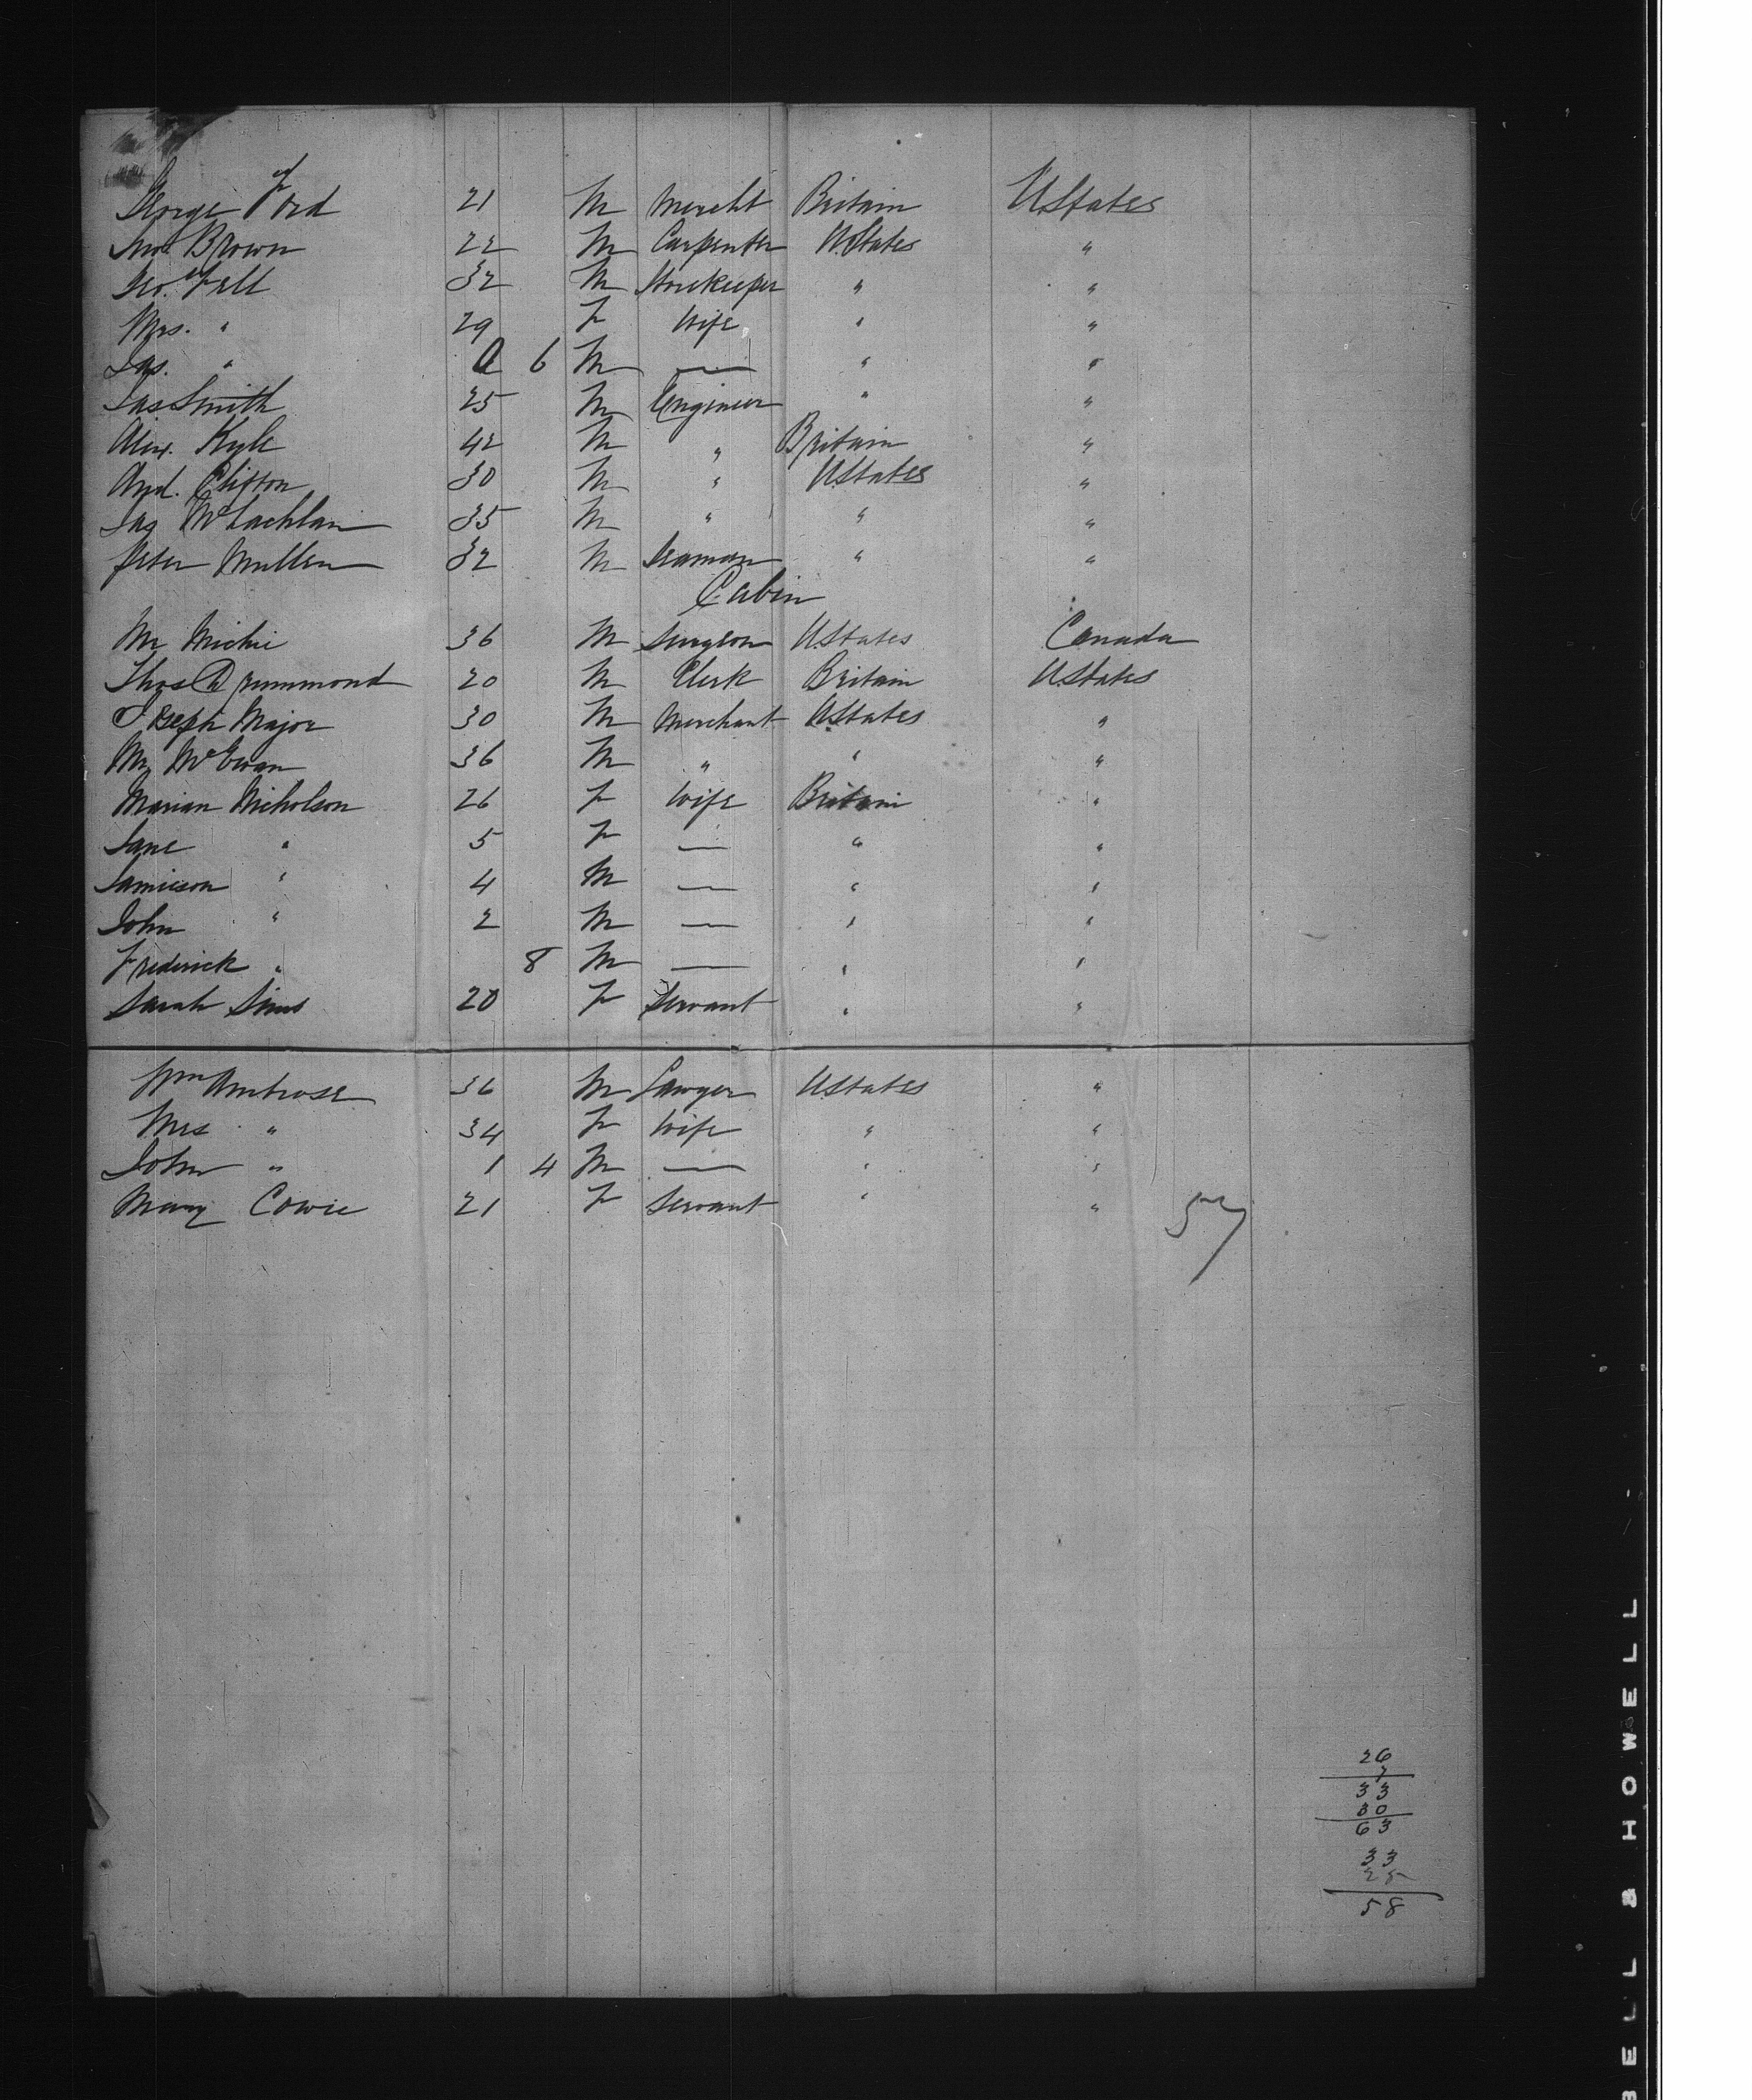 George Ford 21 M Mercht Britain U.States
Jno. Brown 22 M Carpenter U.States "
Geo. Fell 32 M Storekeeper " "
Mrs. " 29 F Wife " "
Jas. " 6 M — " "
Jas Smith 25 M Engineer " "
Alex. Kyle 42 M " Britain "
And. Clifton 30 M " U.States "
Jas McLachlan 35 M " " "
Peter Mullen 32 M Seaman " "
Cabin
Mr Michie 36 M Surgeon U.States Canada
Thos Drummond 20 M Clerk Britain U.States
Joseph Major 30 M Merchant U.States "
Mr McEwan 36 M " " "
Marian Nicholson 26 F Wife Britain "
Jane " 5 F — " "
Jamieson " 4 M — " "
John " 2 M — " "
Frederick " 8 M — " "
Sarah Sims 20 F Servant " "
Wm Ambrose 36 M Lawyer U.States "
Mrs " 34 F Wife " "
John " 1 4 M — " "
Mary Cowie 21 F Servant " "
57
26
7
33
30
63
33
25
58
BELL & HOWELL